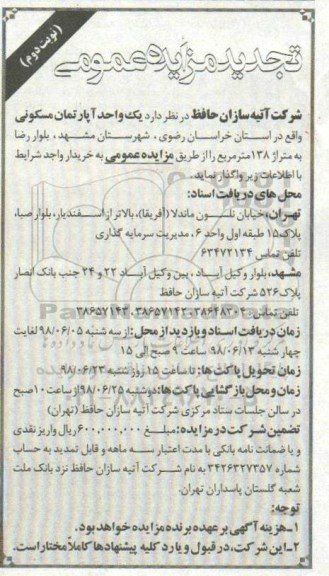 (نوبت دوم)
تجدید مزایده عمومی
شرکت آتیه سازان حافظ در نظر دارد یک واحد آپارتمان مسکونی
واقع در استان خراسان رضوی ، شهرستان مشهد ، بلوار رضا
به متراژ ۱۳۸ مترمربع را از طریق مزایده عمومی به خریدار واجد شرایط
با اطلاعات زیر واگذار نماید.
محل های دریافت اسناد:
تهران: خیابان نلسون ماندلا (آفریقا)، بالاتر از اسفندیار، بلوار صبا،
پلاک ۱۵ طبقه اول واحد ۶، مدیریت سرمایه گذاری
تلفن تماس ۶۳۴۷۲۱۳۴
مشهد: بلوار وکیل آباد ، بین وکیل آباد ۲۲ و ۲۴ جنب بانک انصار
پلاک ۵۲۶ شرکت آتیه سازان حافظ
تلفن تماس ۳۸۶۴۸۳۰۴، ۳۸۶۵۷۱۴۲، ۳۸۶۵۷۱۴۳
زمان دریافت اسناد و بازدید از محل: از سه شنبه ۹۸/۰۶/۰۵ لغایت
چهارشنبه ۹۸/۰۶/۱۳ ساعت ۹ صبح الی ۱۵
زمان تحویل پاکت ها: تا ساعت ۱۵ روز شنبه ۹۸/۰۶/۲۳
زمان و محل بازگشایی پاکت ها: دوشنبه ۹۸/۰۶/۲۵ از ساعت ۱۰ صبح
در سالن جلسات ستاد مرکزی شرکت آتیه سازان حافظ (تهران)
تضمین شرکت در مزایده: مبلغ ۶۰۰,۰۰۰,۰۰۰ ریال واریز نقدی
و یا ضمانت نامه بانکی با مدت اعتبار سه ماهه و قابل تمدید به حساب
شماره ۳۴۲۶۳۲۷۳۵۷ به نام شرکت آتیه سازان حافظ نزد بانک ملت
شعبه گلستان پاسداران تهران.
توجه:
۱- هزینه آگهی بر عهده برنده مزایده خواهد بود.
۲- این شرکت، در قبول و یا رد کلیه پیشنهادها کاملاً مختار است.